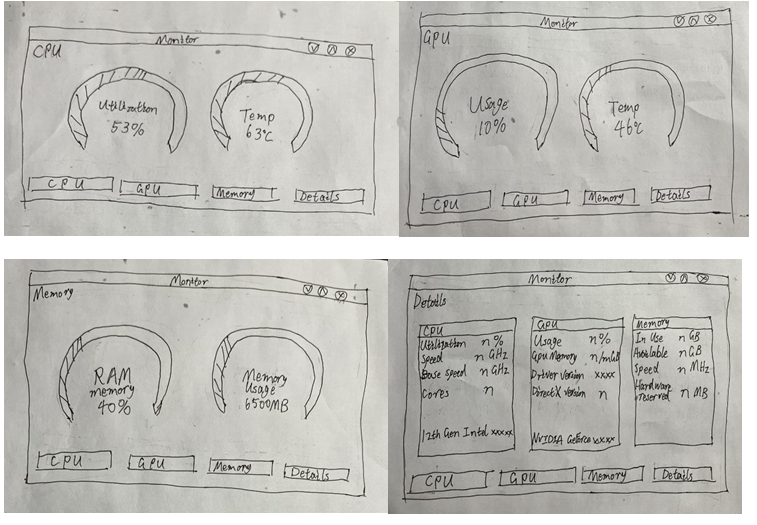 Monitor
CPU
Utilization
53%
Temp
63℃
CPU
GPU
Memory
Details
Monitor
GPU
Usage
10%
Temp
46℃
CPU
GPU
Memory
Details
Monitor
Memory
RAM
memory
40%
Memory
Usage
6500MB
CPU
GPU
Memory
Details
Monitor
Details
CPU
Utilization n%
Speed n GHz
Base speed n GHz
Cores n
12th Gen Intel xxxxx
GPU
Usage n%
Gpu Memory n/mGB
Driver version xxxx
DirectX version n
NVIDIA Geforce xxxx
Memory
In Use n GB
Available n GB
Speed n MHz
Hardware
reserved n MB
CPU
GPU
Memory
Details